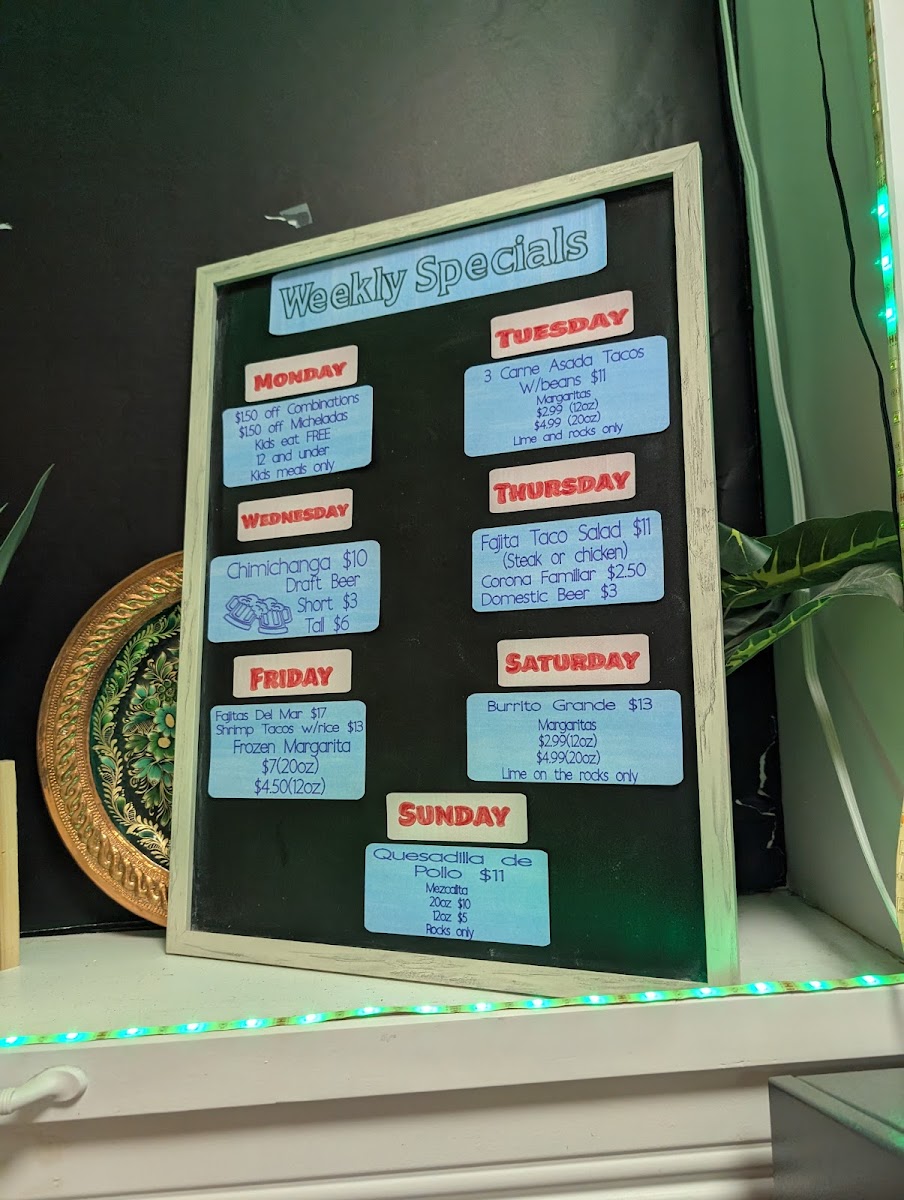 Weekly Specials
MONDAY
$1.50 off Combinations
$1.50 off Micheladas
Kids eat FREE
12 and under
Kids meals only
TUESDAY
3 Carne Asada Tacos
W/beans $11
Margaritas
$2.99 (12oz)
$4.99 (20oz)
Lime and rocks only
WEDNESDAY
Chimichanga $10
Draft Beer
Short $3
Tall $6
THURSDAY
Fajita Taco Salad $11
(Steak or chicken)
Corona Familiar $2.50
Domestic Beer $3
FRIDAY
Fajitas Del Mar $17
Shrimp Tacos w/rice $13
Frozen Margarita
$7(20oz)
$4.50(12oz)
SATURDAY
Burrito Grande $13
Margaritas
$2.99(12oz)
$4.99(20oz)
Lime on the rocks only
SUNDAY
Quesadilla de
Pollo $11
Mezcalita
20oz $10
12oz $5
Rocks only